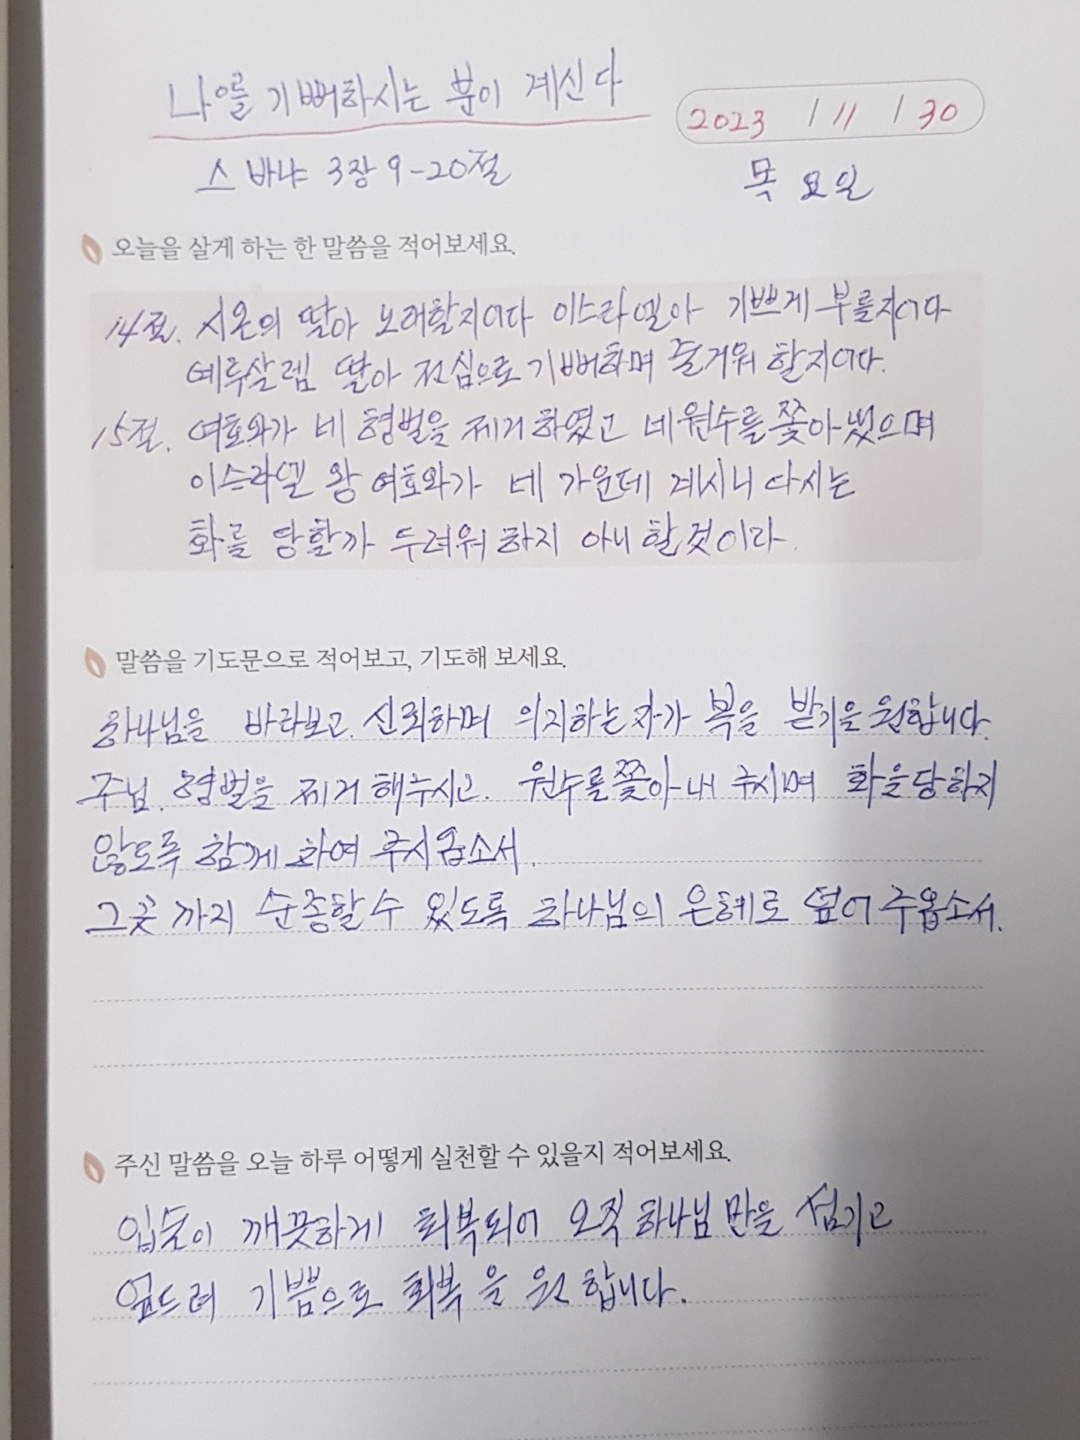 나를 기뻐하시는 분이 계신다
2023 / 11 / 30
스바냐 3장 9-20절
목요일
오늘을 살게 하는 한 말씀을 적어보세요.
14절. 시온의 딸아 노래할지어다 이스라엘아 기쁘게 부를지어다
예루살렘 딸아 전심으로 기뻐하며 즐거워 할지어다.
15절. 여호와가 네 형벌을 제거하였고 네 원수를 쫓아냈으며
이스라엘 왕 여호와가 네 가운데 계시니 다시는
화를 당할까 두려워하지 아니 할것이라.
말씀을 기도문으로 적어보고, 기도해 보세요.
하나님을 바라보고. 신뢰하며 의지하는 자가 복을 받기을 원합니다.
주님. 형벌을 제거 해주시고. 원수를 쫓아내 주시며 화을 당하지
않도록 함께 하여 주시옵소서.
그곳 까지 순종할 수 있도록 하나님의 은혜로 덮어 주옵소서.
주신 말씀을 오늘 하루 어떻게 실천할 수 있을지 적어보세요.
입술이 깨끗하게 회복되어 오직 하나님 만을 섬기고
엎드려 기쁨으로 회복을 원합니다.